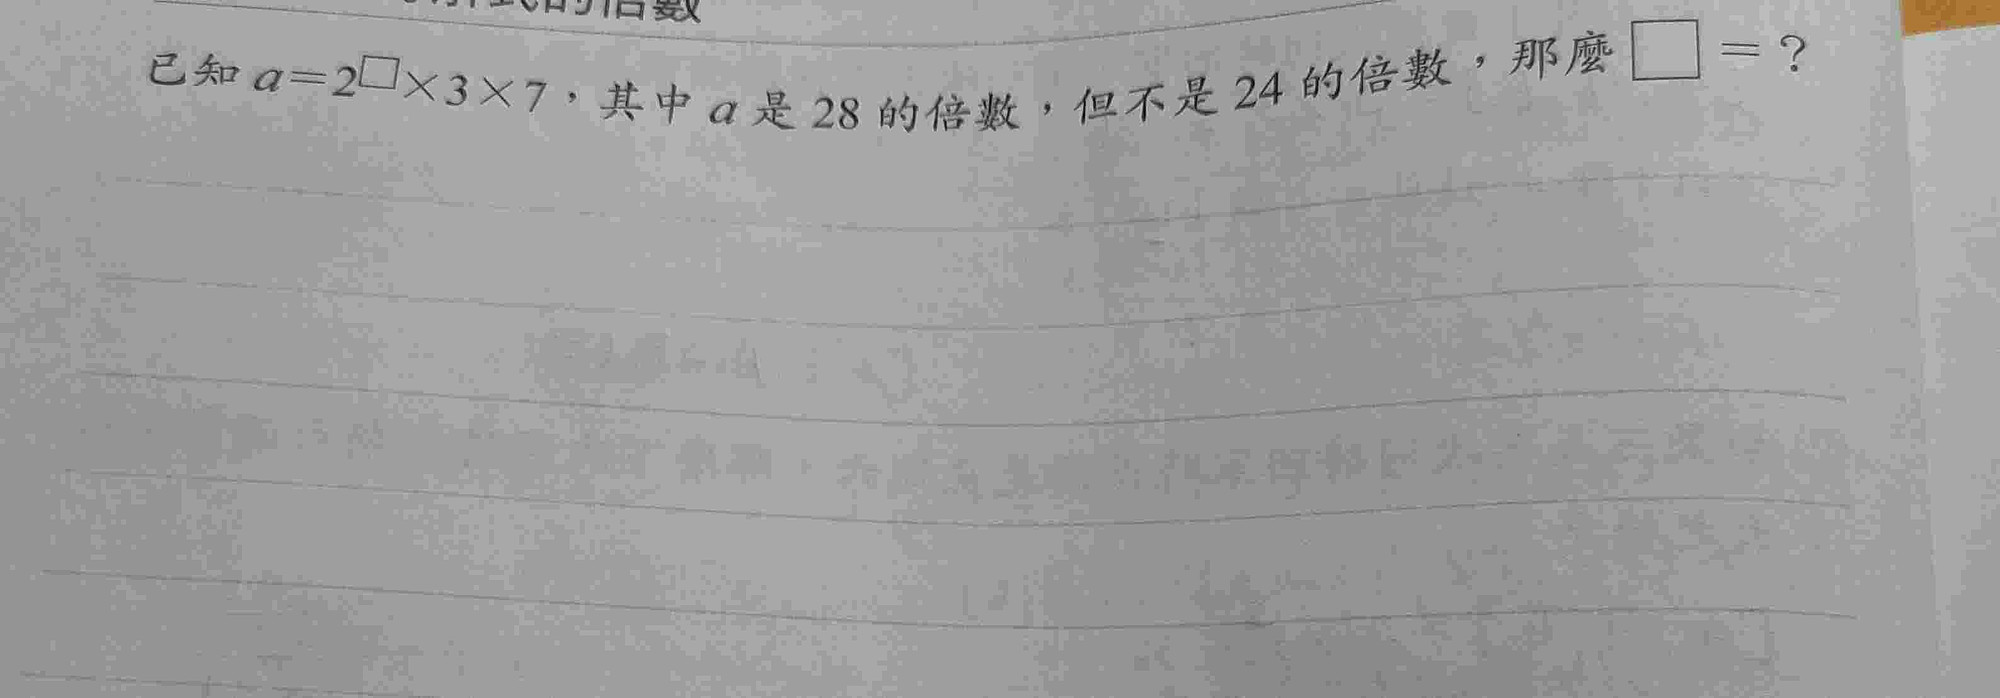 的倍數
已知 a=2□×3×7，其中 a 是 28 的倍數，但不是 24 的倍數，那麼 □ = ?